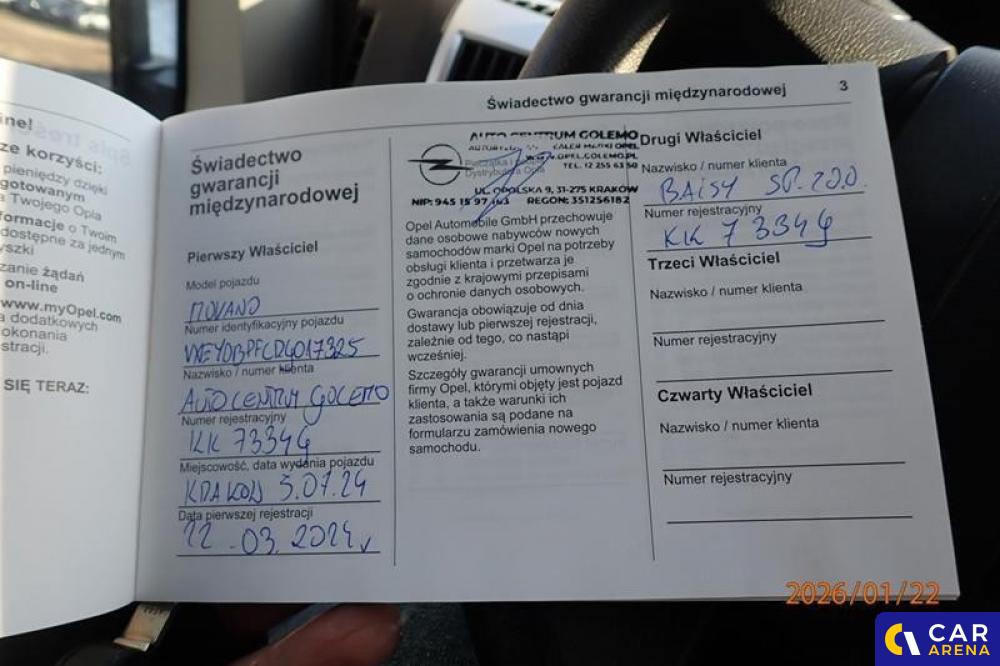 Świadectwo gwarancji międzynarodowej 3
ine!
ze korzyści:
pieniędzy dzięki
gotowanym
a Twojego Opla
formacje o Twoim
dostępne za jednym
yszki
zanie żądań
on-line
www.myOpel.com
a dodatkowych
okonania
stracji.
SIĘ TERAZ:
Świadectwo
gwarancji
międzynarodowej
Pierwszy Właściciel
Model pojazdu
MOVANO
Numer identyfikacyjny pojazdu
VXEYDBPFCRG017325
Nazwisko / numer klienta
AUTO CENTRUM GOLEMO
Numer rejestracyjny
KK 7334G
Miejscowość, data wydania pojazdu
KRAKÓW 5.07.24
Data pierwszej rejestracji
22.03.2024
AUTO CENTRUM GOLEMO
WWW.OPEL.GOLEMO.PL
TEL. 12 255 63 50
UL. OPOLSKA 9, 31-275 KRAKÓW
REGON: 351256182
Opel Automobile GmbH przechowuje
dane osobowe nabywców nowych
samochodów marki Opel na potrzeby
obsługi klienta i przetwarza je
zgodnie z krajowymi przepisami
o ochronie danych osobowych.
Gwarancja obowiązuje od dnia
dostawy lub pierwszej rejestracji,
zależnie od tego, co nastąpi
wcześniej.
Szczegóły gwarancji umownych
firmy Opel, którymi objęty jest pojazd
klienta, a także warunki ich
zastosowania są podane na
formularzu zamówienia nowego
samochodu.
Drugi Właściciel
Nazwisko / numer klienta
BAISY SP. ZOO.
Numer rejestracyjny
KK 7334G
Trzeci Właściciel
Nazwisko / numer klienta
Numer rejestracyjny
Czwarty Właściciel
Nazwisko / numer klienta
Numer rejestracyjny
2026/01/22
CAR
ARENA